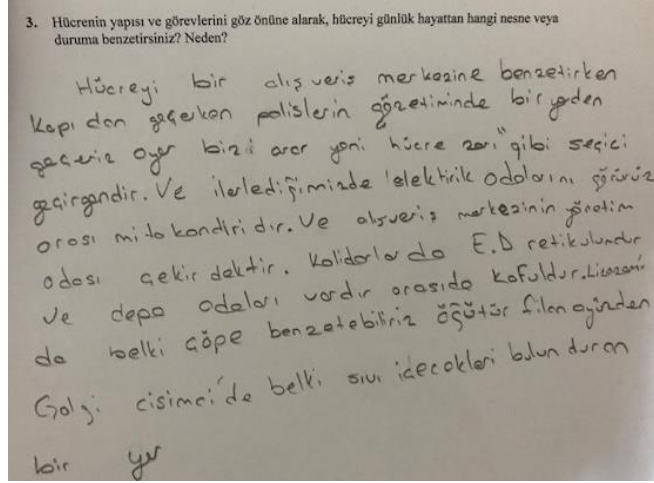 3. Hücrenin yapısı ve görevlerini göz önüne alarak, hücreyi günlük hayattan hangi nesne veya
duruma benzetirsiniz? Neden?
Hücreyi bir alış veriş merkezine benzetirken
Kapı dan geçerken polislerin gözetiminde bir yerden
geçeriz oyer bizi arar yani hücre zarı" gibi seçici
geçirgendir. Ve ilerlediğimizde elektirik odalarını görürüz
orası mitokondiri dir. Ve alışveriş merkezinin yönetim
odası çekir dektir. Kolidorlar da E.D retikulumdur
ve depo odaları vardır orasıda kofuldur. Lizozomı
da belki çöpe benzetebiliriz öğütür filan oyüzden
Golgi cisimci'de belki sıvı içecekleri bulun duran
bir yer